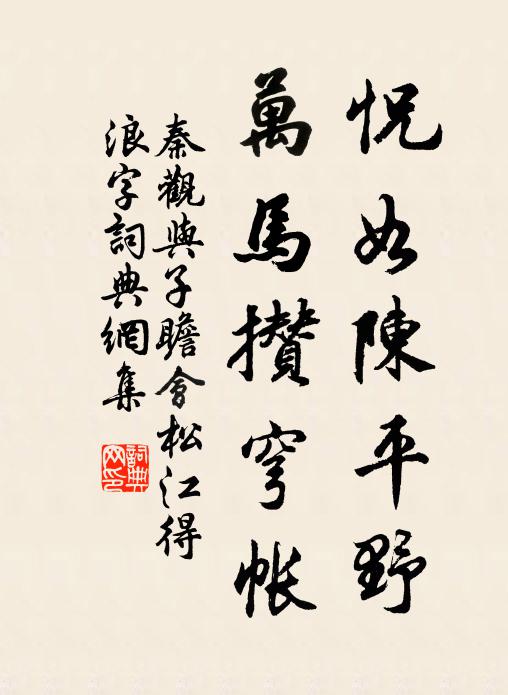 怳如陳平野
萬馬攢穹帳
秦觀與子瞻會松江得
浪字詞典網集
詞典
网印